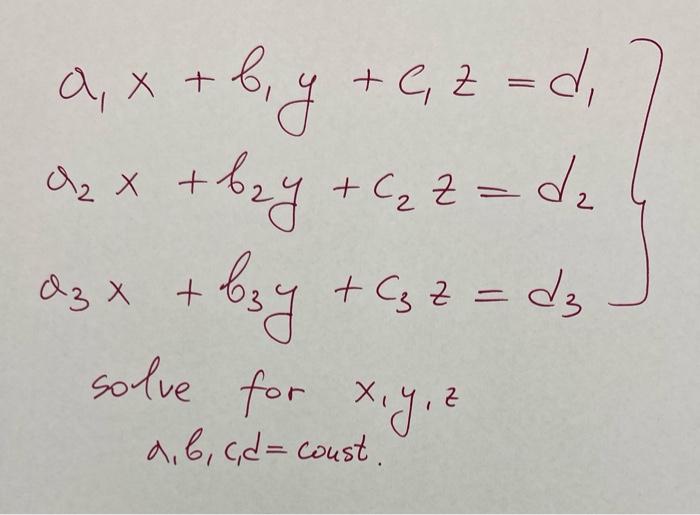 a₁ x + b₁ y + c₁ z = d₁
a₂ x + b₂y + c₂ z = d₂
a₃ x + b₃y + c₃ z = d₃
solve for x, y, z
a, b, c, d = const.